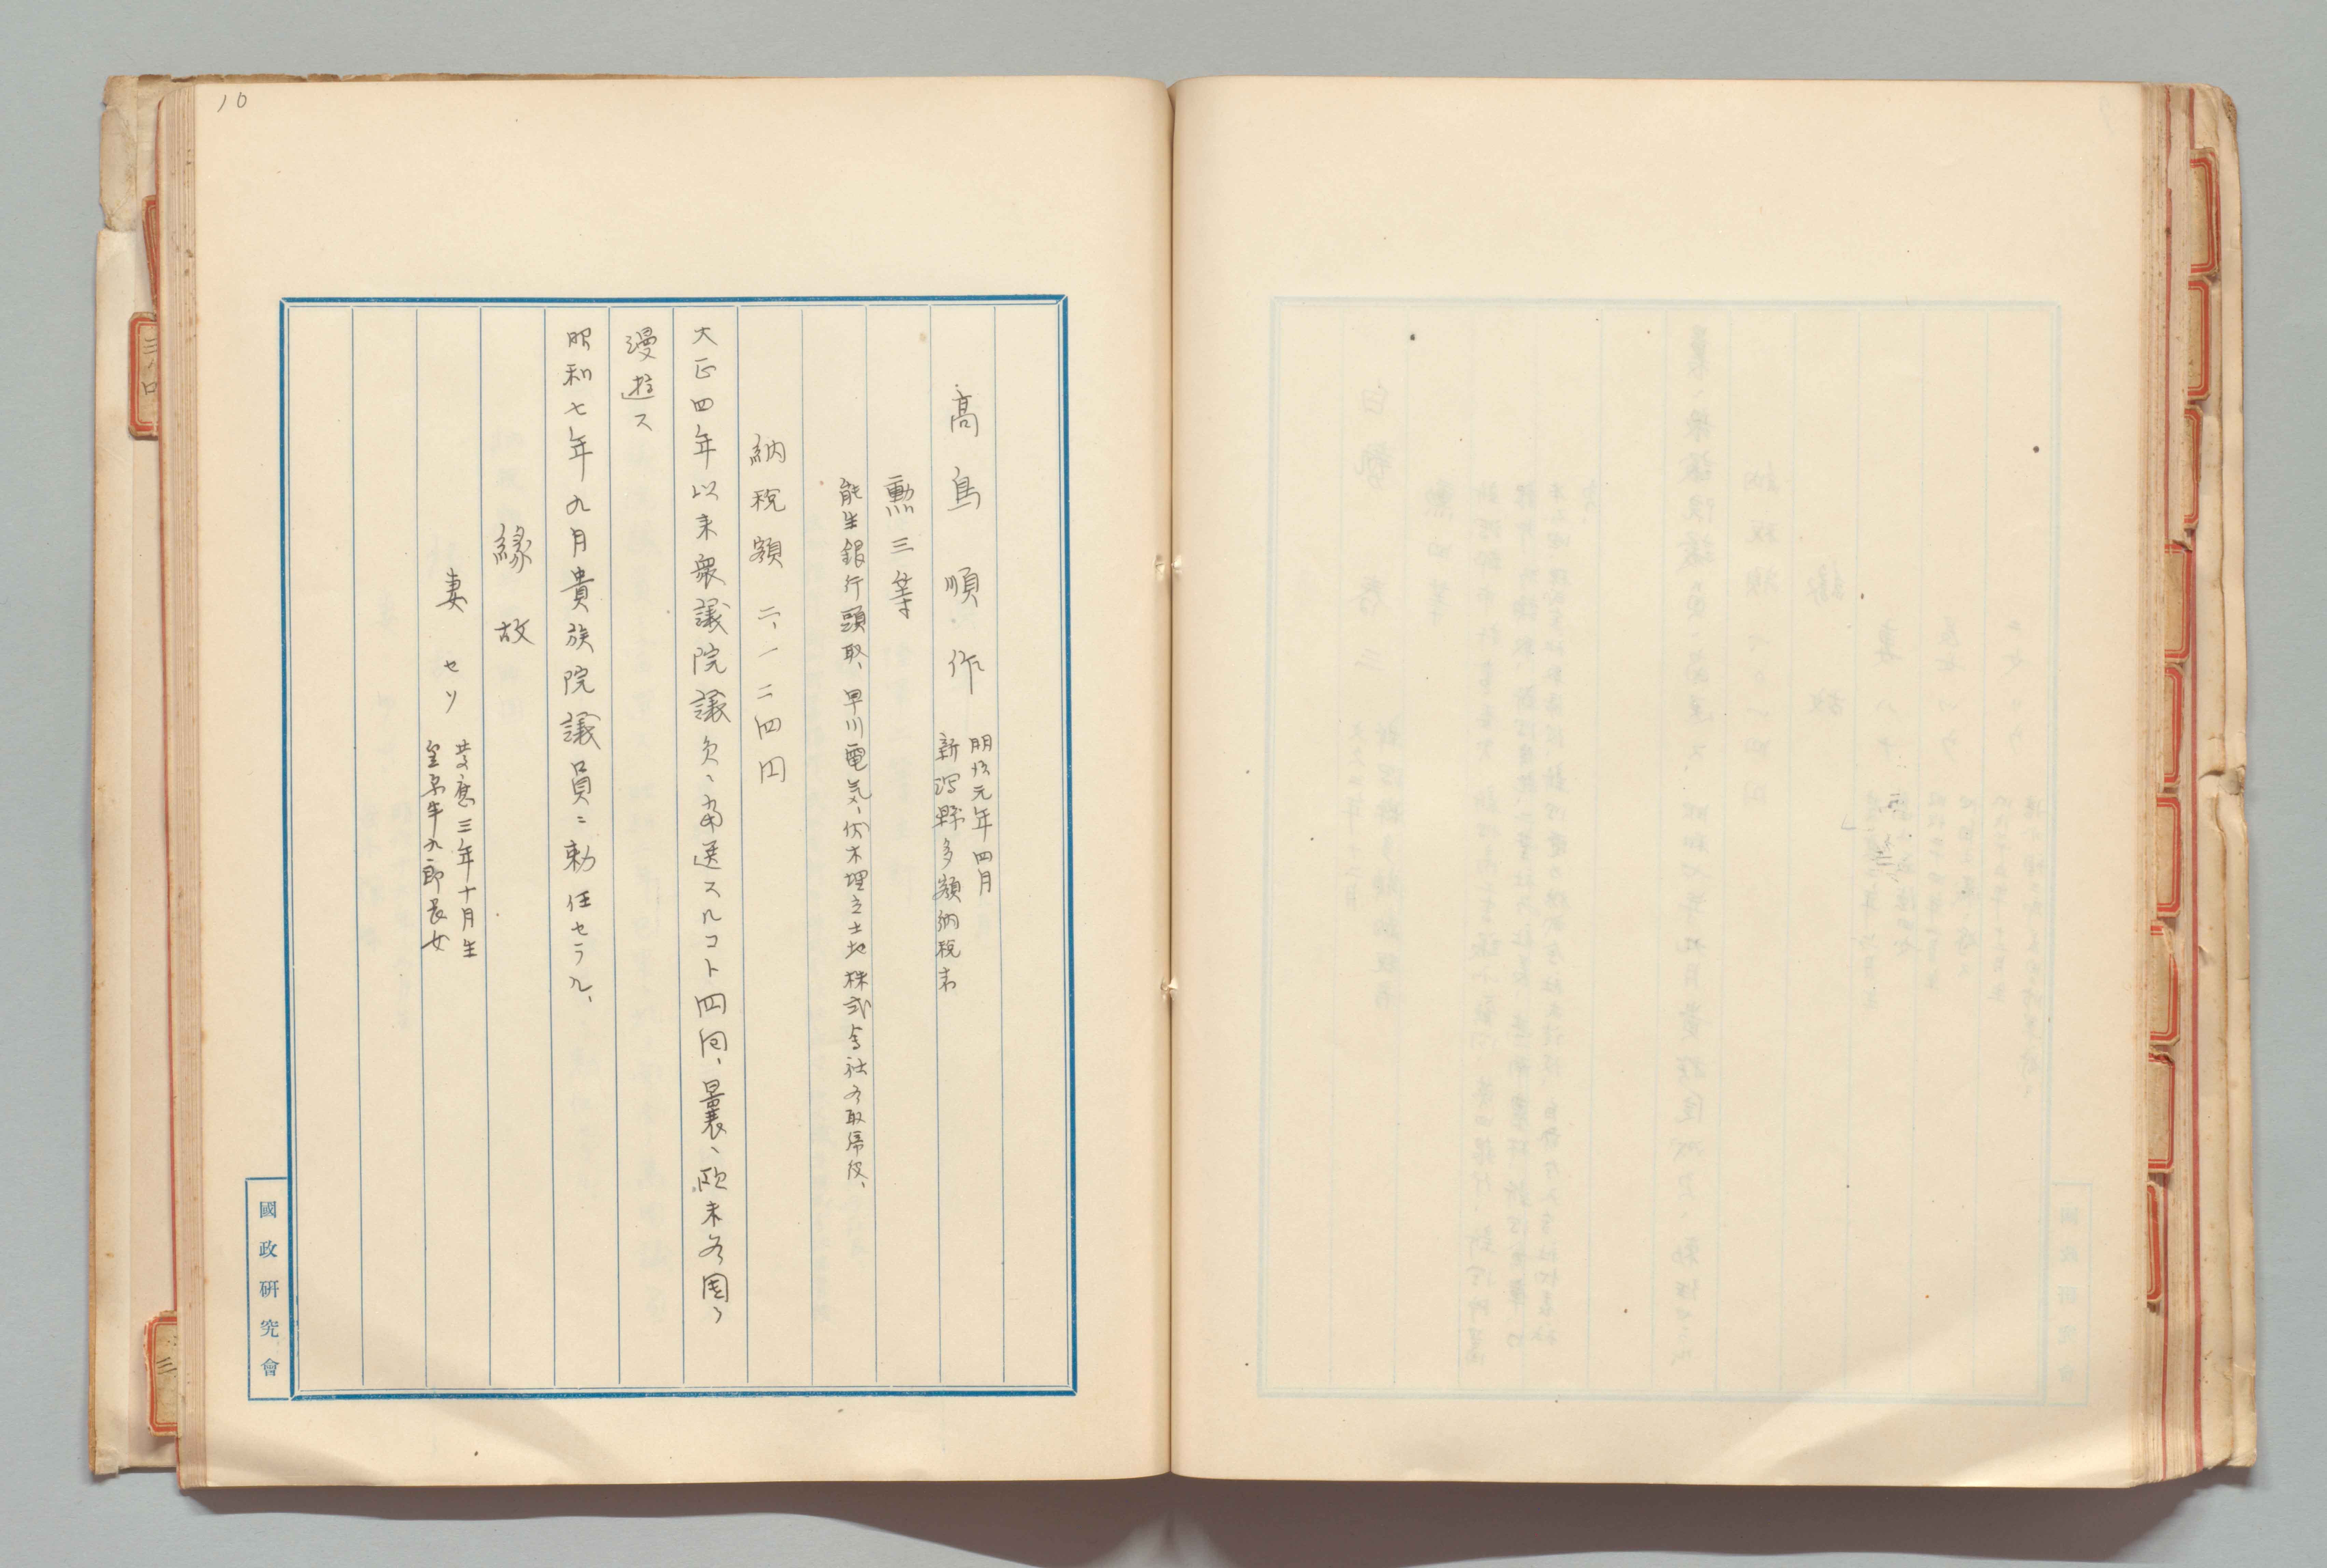 10
髙鳥順作
明治元年四月
新潟縣多額納税者
勲三等
能生銀行頭取、早川電気、伏木埋立土地株式会社各取締役、
納税額 二、一二四円
大正四年以来衆議院議員ニ當選スルコト四回、曩ニ欧米各国ヲ
漫遊ス
昭和七年九月貴族院議員ニ勅任セラル、
縁故
妻 セツ
慶應三年十月生
牛九郎長女
國政研究會